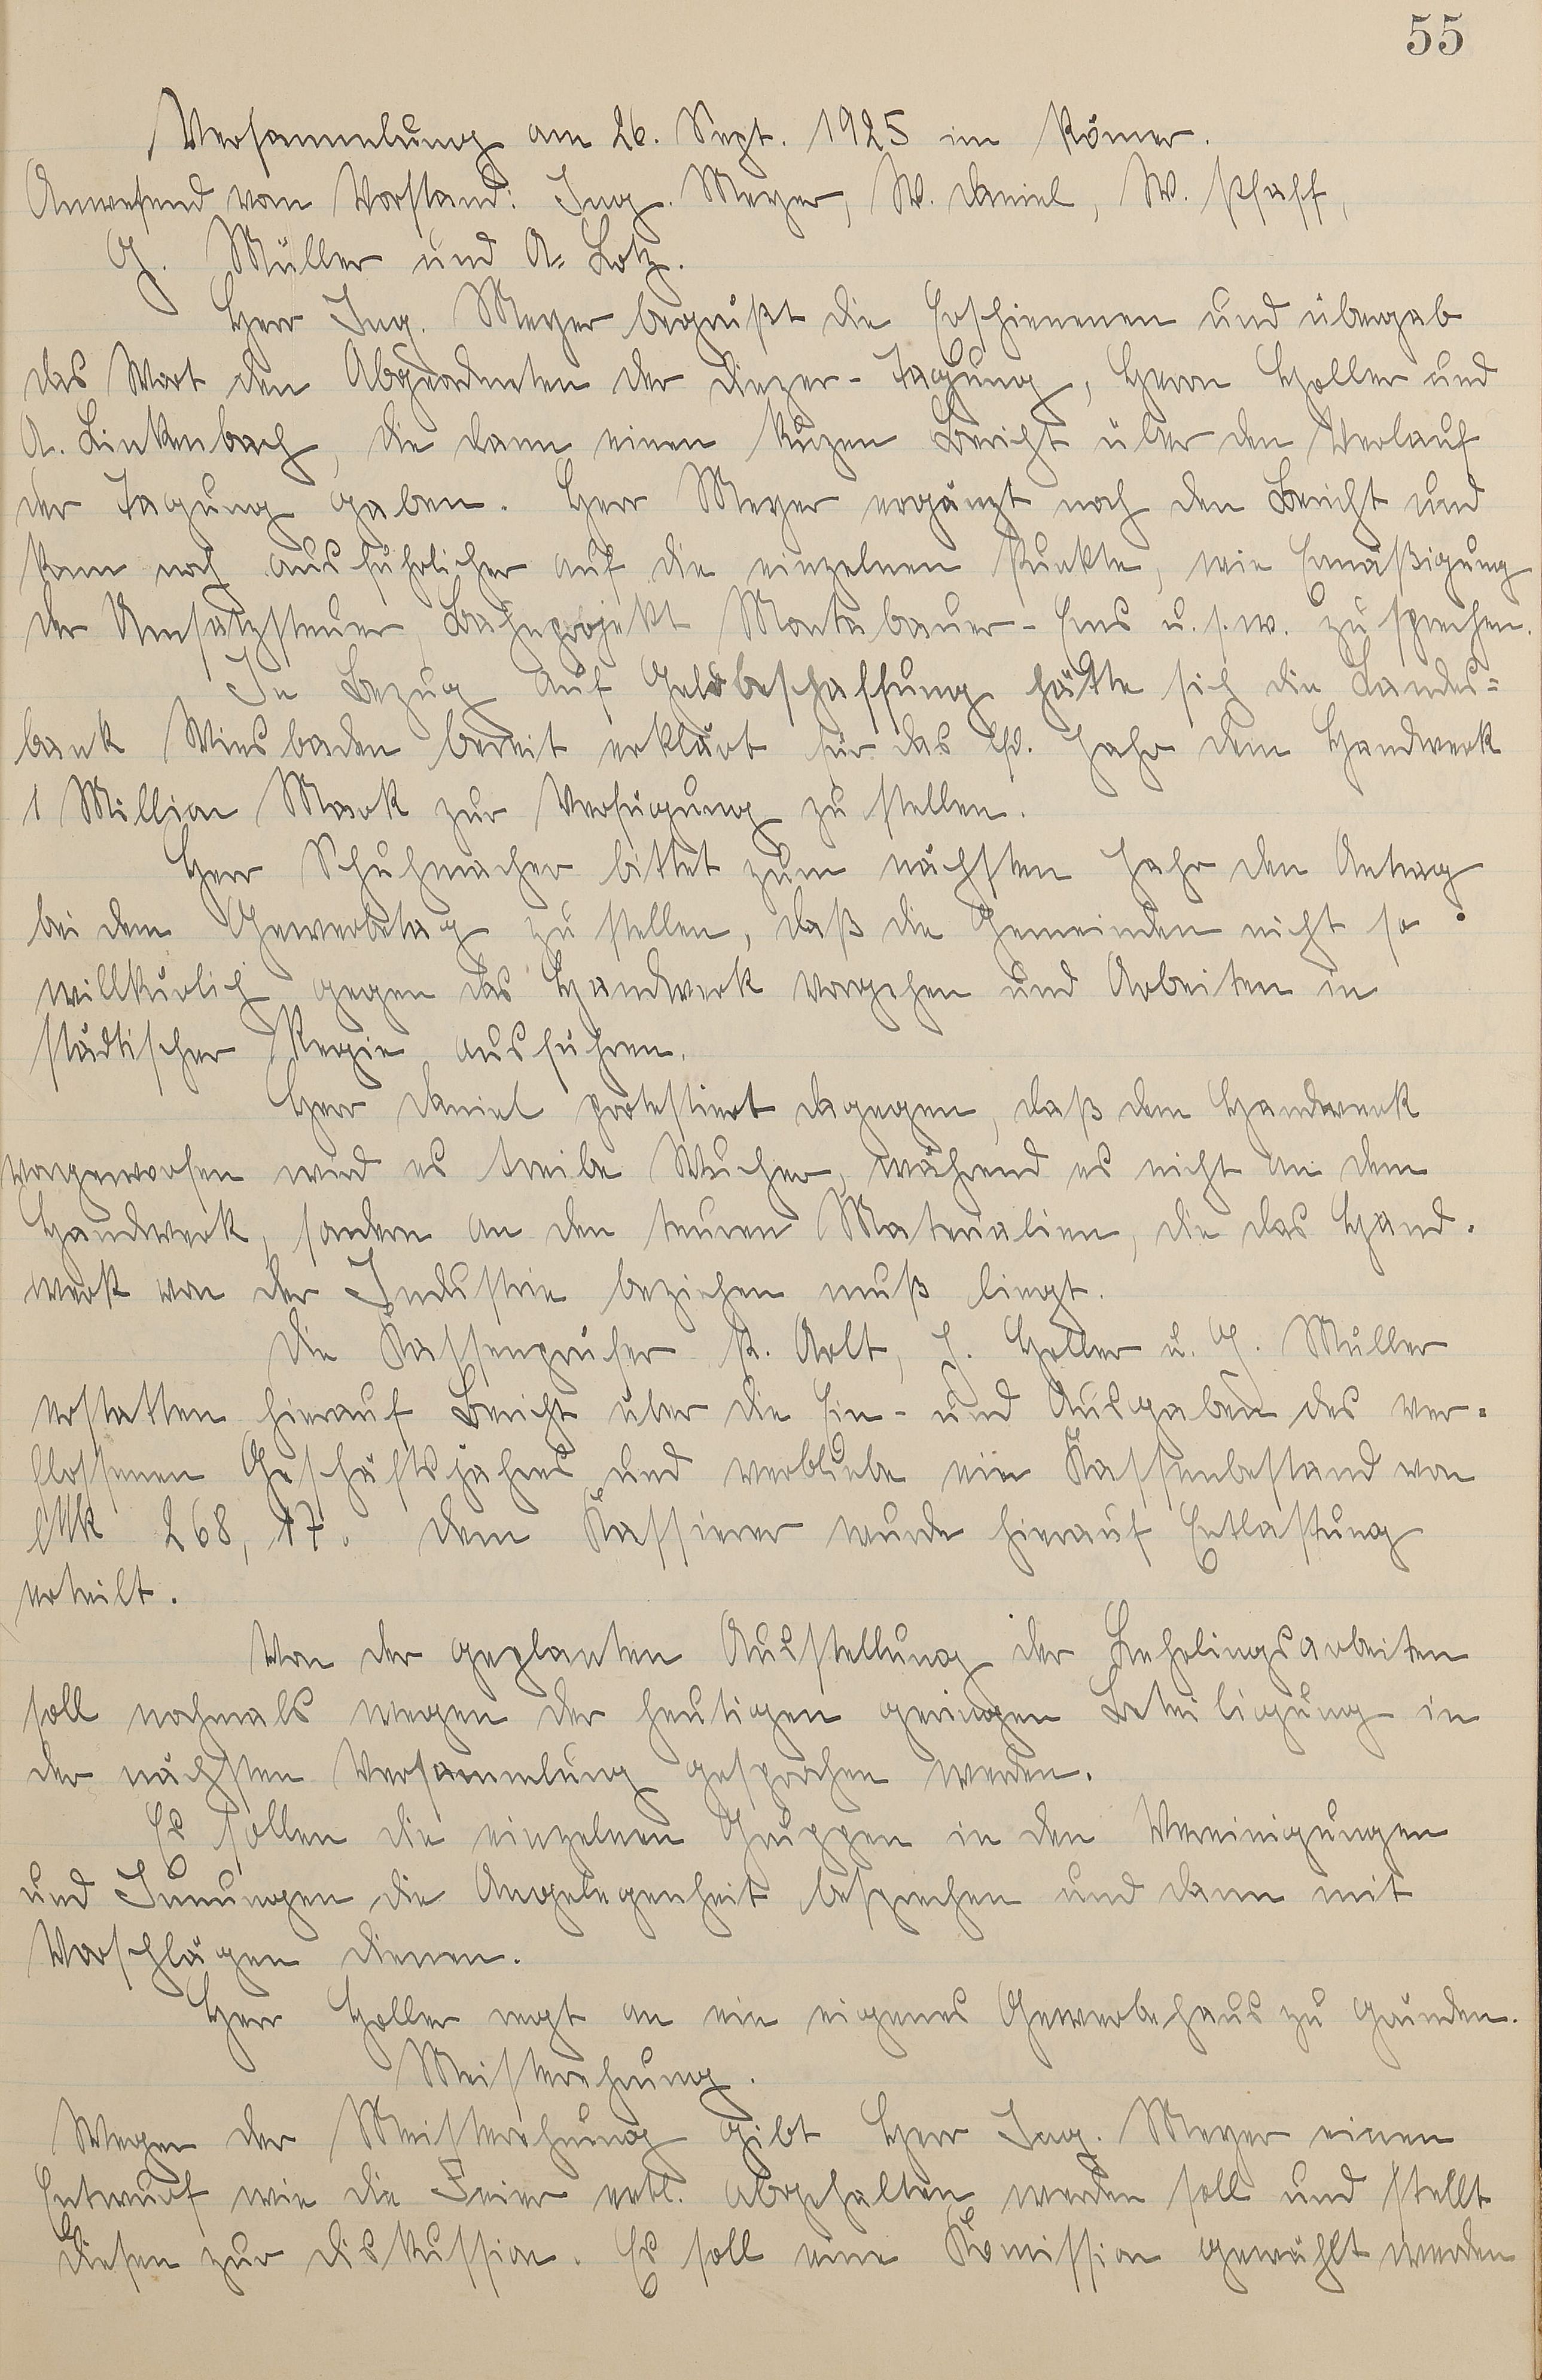 55
Versammlung am 26. Sept. 1925 im Römer.
Anwesend vom Vorstand: Ing. Meyer, W. Daniel, W. Pfaff,
G. Müller und A. Lotz.
Herr Ing. Meyer begrüßt die Erschienenen und übergab
das Wort den Abgeordneten der Diezer-Tagung, Herrn Holler und
A. Linkenbach, die dann einen kurzen Bericht über den Verlauf
der Tagung gaben. Herr Meyer ergänzt noch den Bericht und
kam noch ausführlicher auf die einzelnen Punkte, wie Ermäßigung
der Umsatzsteuer, Bahnprojekt Montabauer-Ems u.s.w. zu sprechen.
In Bezug auf Geldbeschaffung hätte sich die Landes=
bank Wiesbaden bereit erklärt für das lfd. Jahr dem Handwerk
1 Million Mark zur Verfügung zu stellen.
Herr Schuhmacher bittet zum nächsten Jahr den Antrag
bei dem Gewerbetag zu stellen, daß die Gemeinden nicht so
willkürlich gegen das Handwerk vorgehen und Arbeiten in
städtischer Regie ausführen.
Herr Daniel protestiert dagegen, daß dem Handwerk
vorgeworfen wird es treibe Wucher, während es nicht an dem
Handwerk, sondern an den teuren Materialien, die das Hand-
werk von der Industrie beziehen muß liegt.
Die Kassenprüfer K. Arlt, J. Holler u. G. Müller
erstatten hierauf Bericht über die Ein- und Ausgaben des ver=
flossenen Geschäftsjahres und verbliebe ein Kassenbestand von
Mk 268,17. Dem Kassierer wurde hierauf Entlastung
erteilt.
Von der geplanten Ausstellung der Lehrlingsarbeiten
soll nochmals wegen der heutigen geringen Beteiligung in
der nächsten Versammlung gesprochen werden.
Es sollen die einzelnen Gruppen in den Vereinigungen
und Innungen die Angelegenheit besprechen und dann mit
Vorschlägen dienen.
Herr Holler regt an ein eigenes Gewerbehaus zu gründen.
Meisterehrung.
Wegen der Meisterehrung gibt Herr Ing. Meyer einen
Entwurf wie die Feier evtl. abgehalten werden soll und stellt
diesen zur Diskussion. Es soll eine Komission gewählt werden